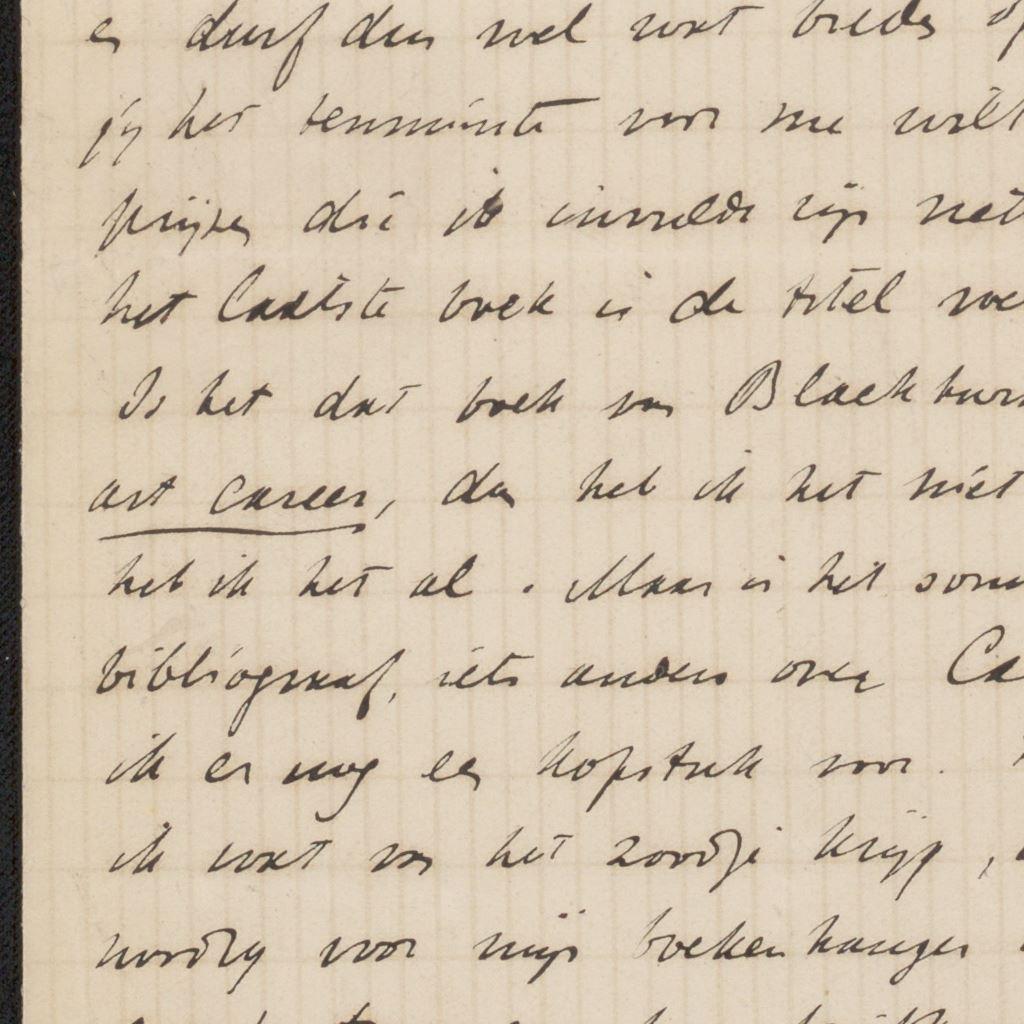 en durf dan wel wat breder op
jij het tenminste voor me wilt
prijzen die ik invulde zijn net
het laatste boek is de titel
Is het dat boek van Blackburn
art career, dan heb ik het niet
heb ik het al. Maar is het
bibliograaf, iets anders over Ca
ik er nog een kopstuk voor.
ik wat van het zoodje krijg,
noodig voor mijn boekenhanger